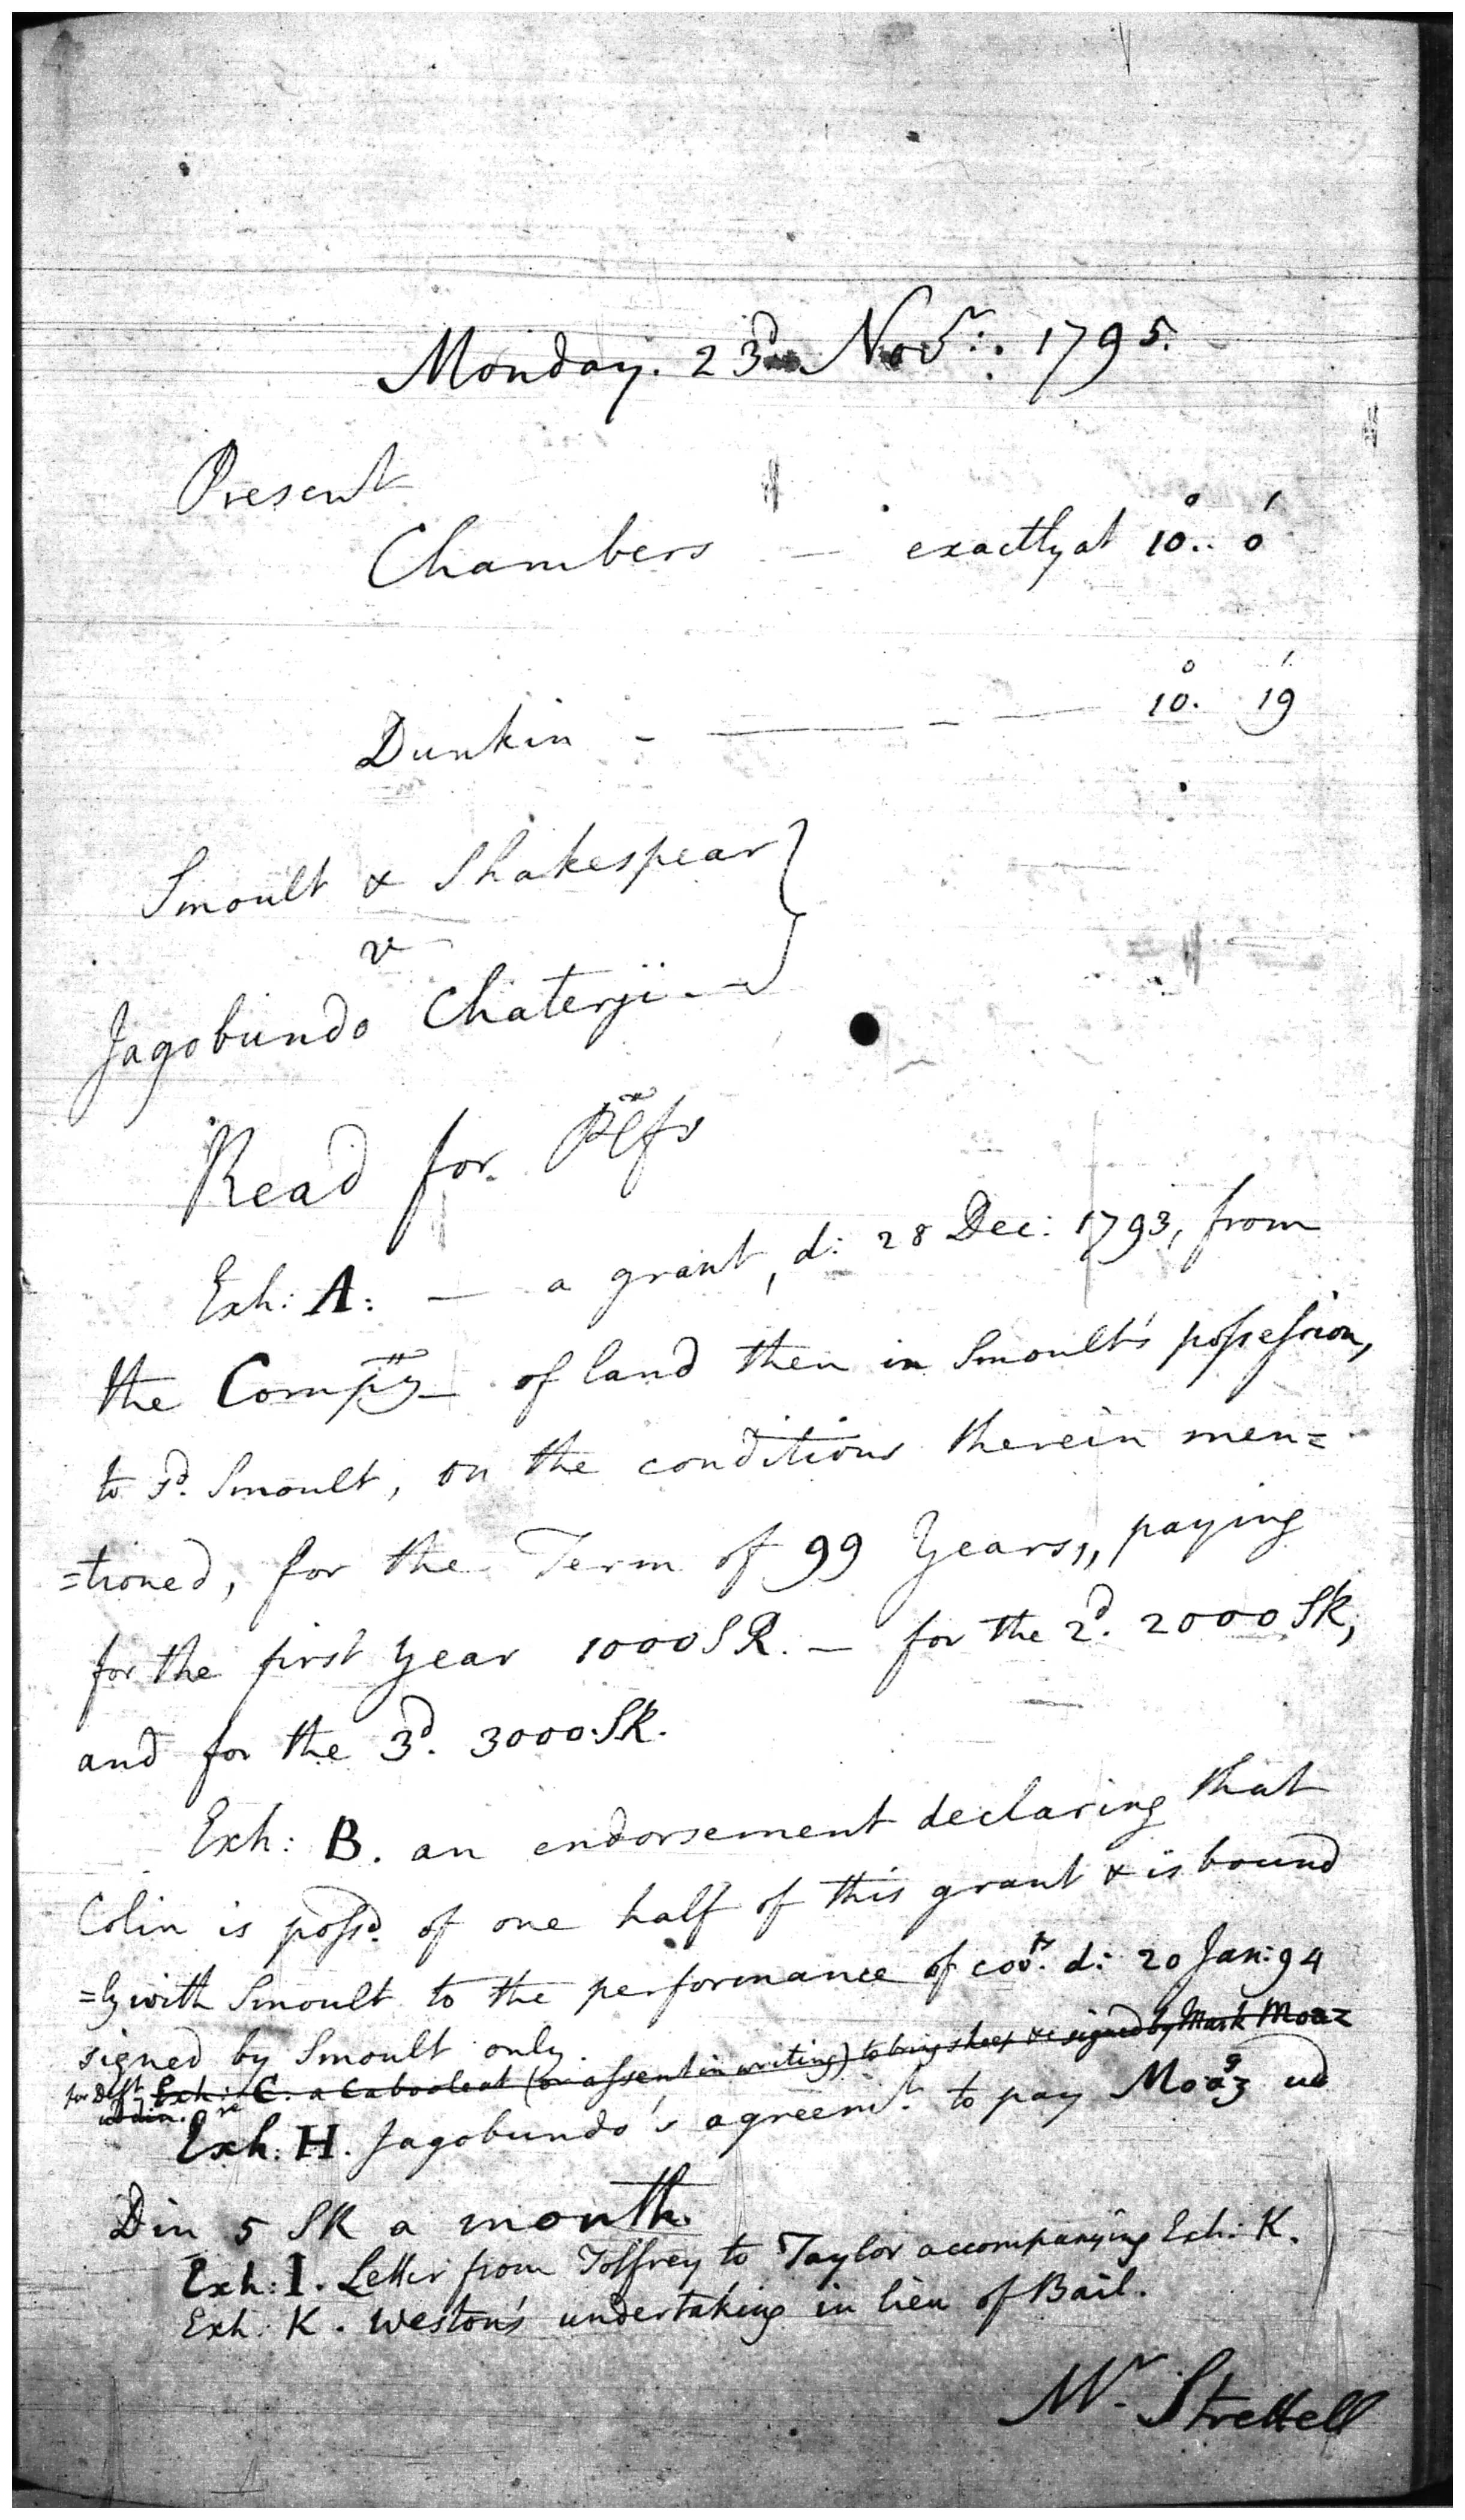 Monday. 23d. Novr: 1795.
Present
Chambers — exactly at 10°.. 0'
Dunkin - — - — 10°. 19'
Smoult & Shakespear
v
Jagobundo Chaterji - -
Read for Plfs
Exh: A: — a grant, d: 28 Dec: 1793, from
the Compy — of land then in Smoult's possession,
to sd. Smoult, on the conditions therein men=
=tioned, for the Term of 99 Years,, paying
for the first Year 1000 SR. — for the 2d. 2000 SR,
and for the 3d. 3000: SR.
Exh: B. an endorsement declaring that
Colin is possd. of one half of this grant & is bound
=ly with Smoult to the performance of covts. d: 20 Jan: 94
signed by Smoult only.
for Deft Exh: C. a Cabooleat (or assent in writing) to bring sheep &c signed by Mark Moaz
uddin.
Exh: H. Jagobundo's agreemt. to pay Moaz ud
Din 5 SR a month.
Exh: I. Letter from Tolfrey to Taylor accompanying Exh: K.
Exh: K. Weston's undertaking in lieu of Bail.
Mr. Strettell